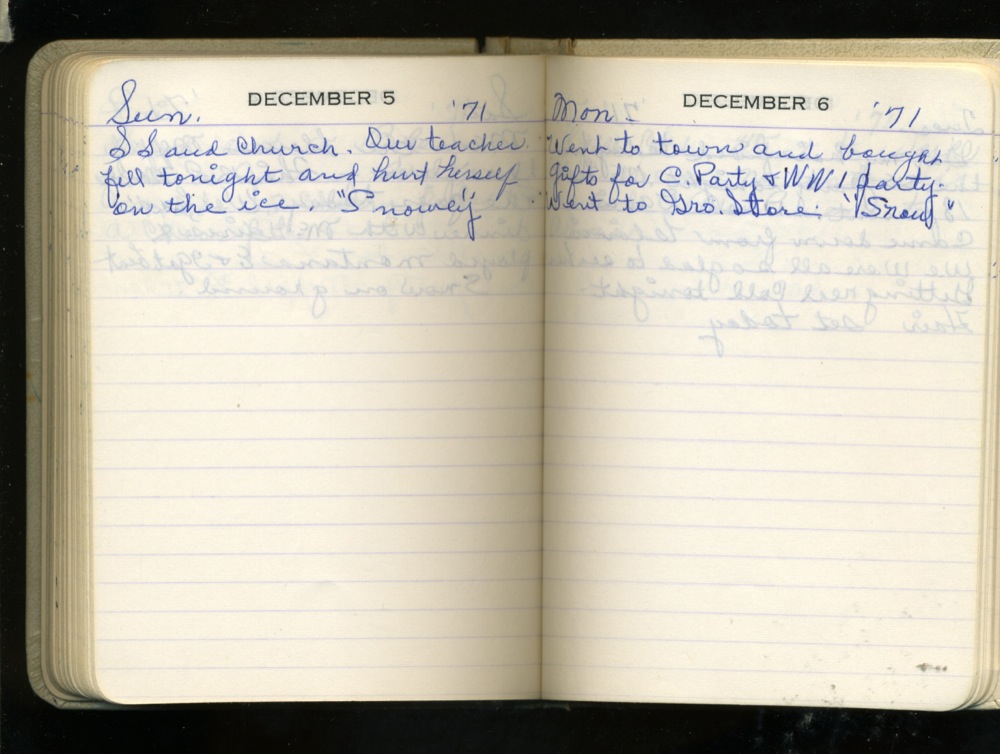 DECEMBER 5
Sun. '71
S S and Church. Our teacher
fell tonight and hurt herself
on the ice. "Snowey"
DECEMBER 6
Mon - '71
Went to town and bought
gifts for C. Party & WW 1 party.
Went to Gro. Store. "Snowy"